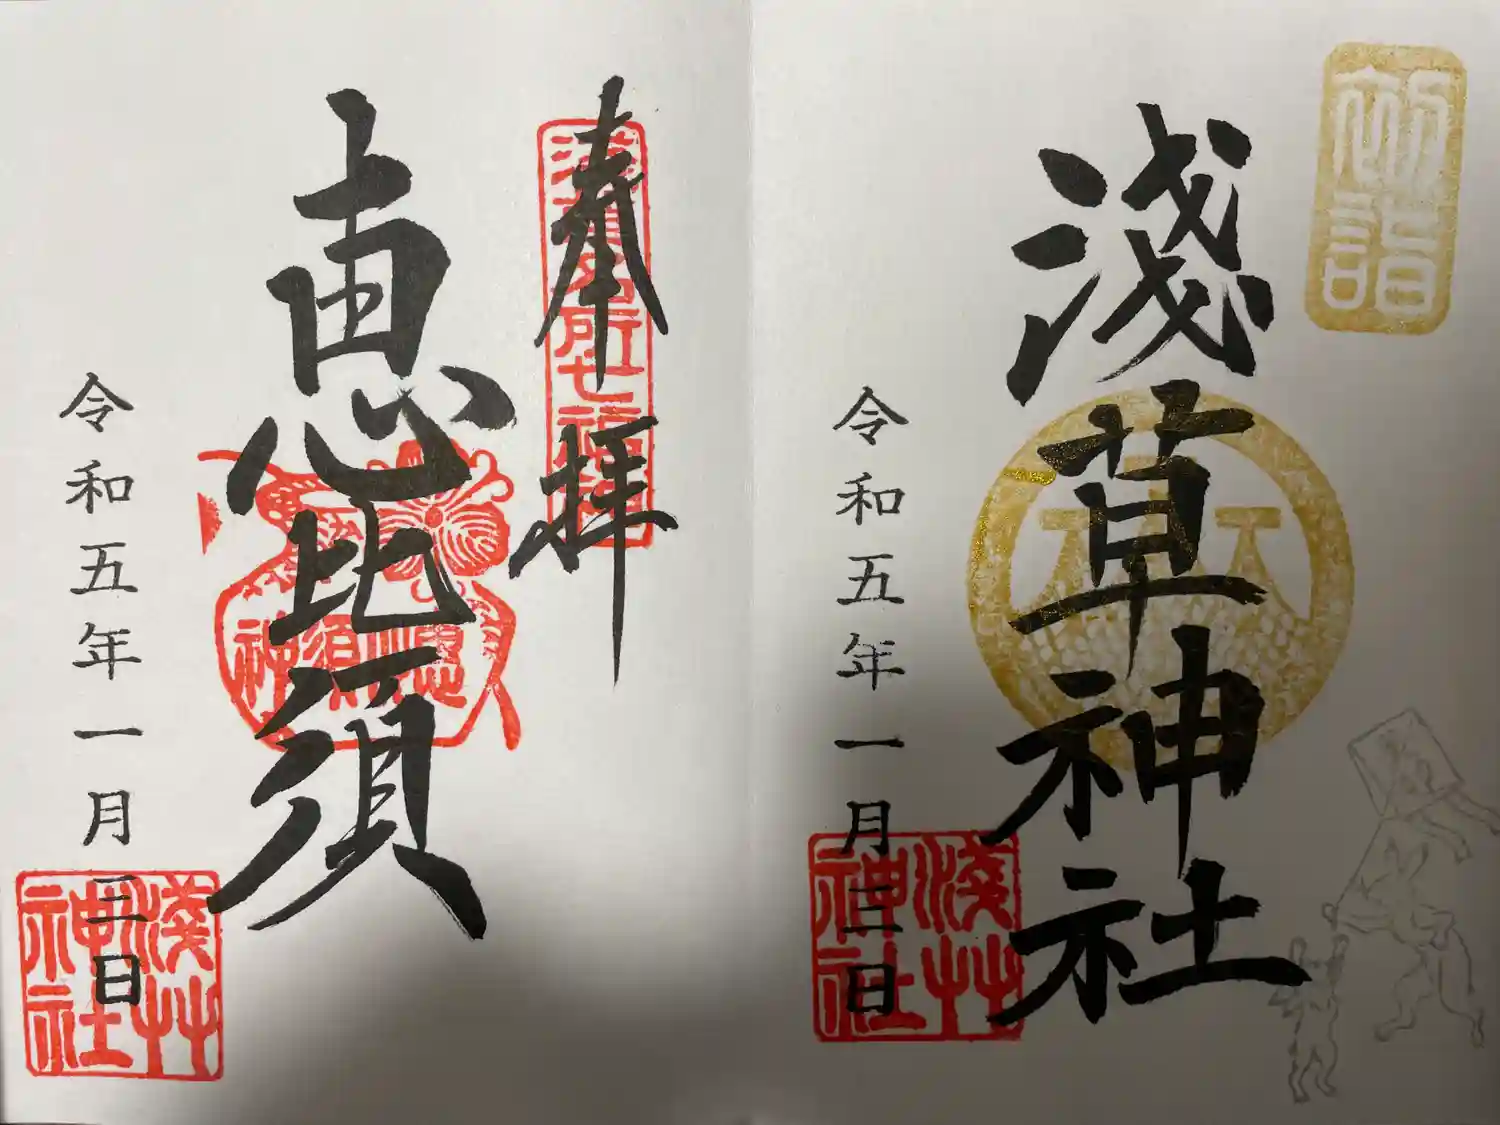 初詣
淺草神社
令和五年一月三日
淺艸神社
奉拝
浅草名所七福神
恵比須
惠比須神
令和五年一月三日
淺艸神社